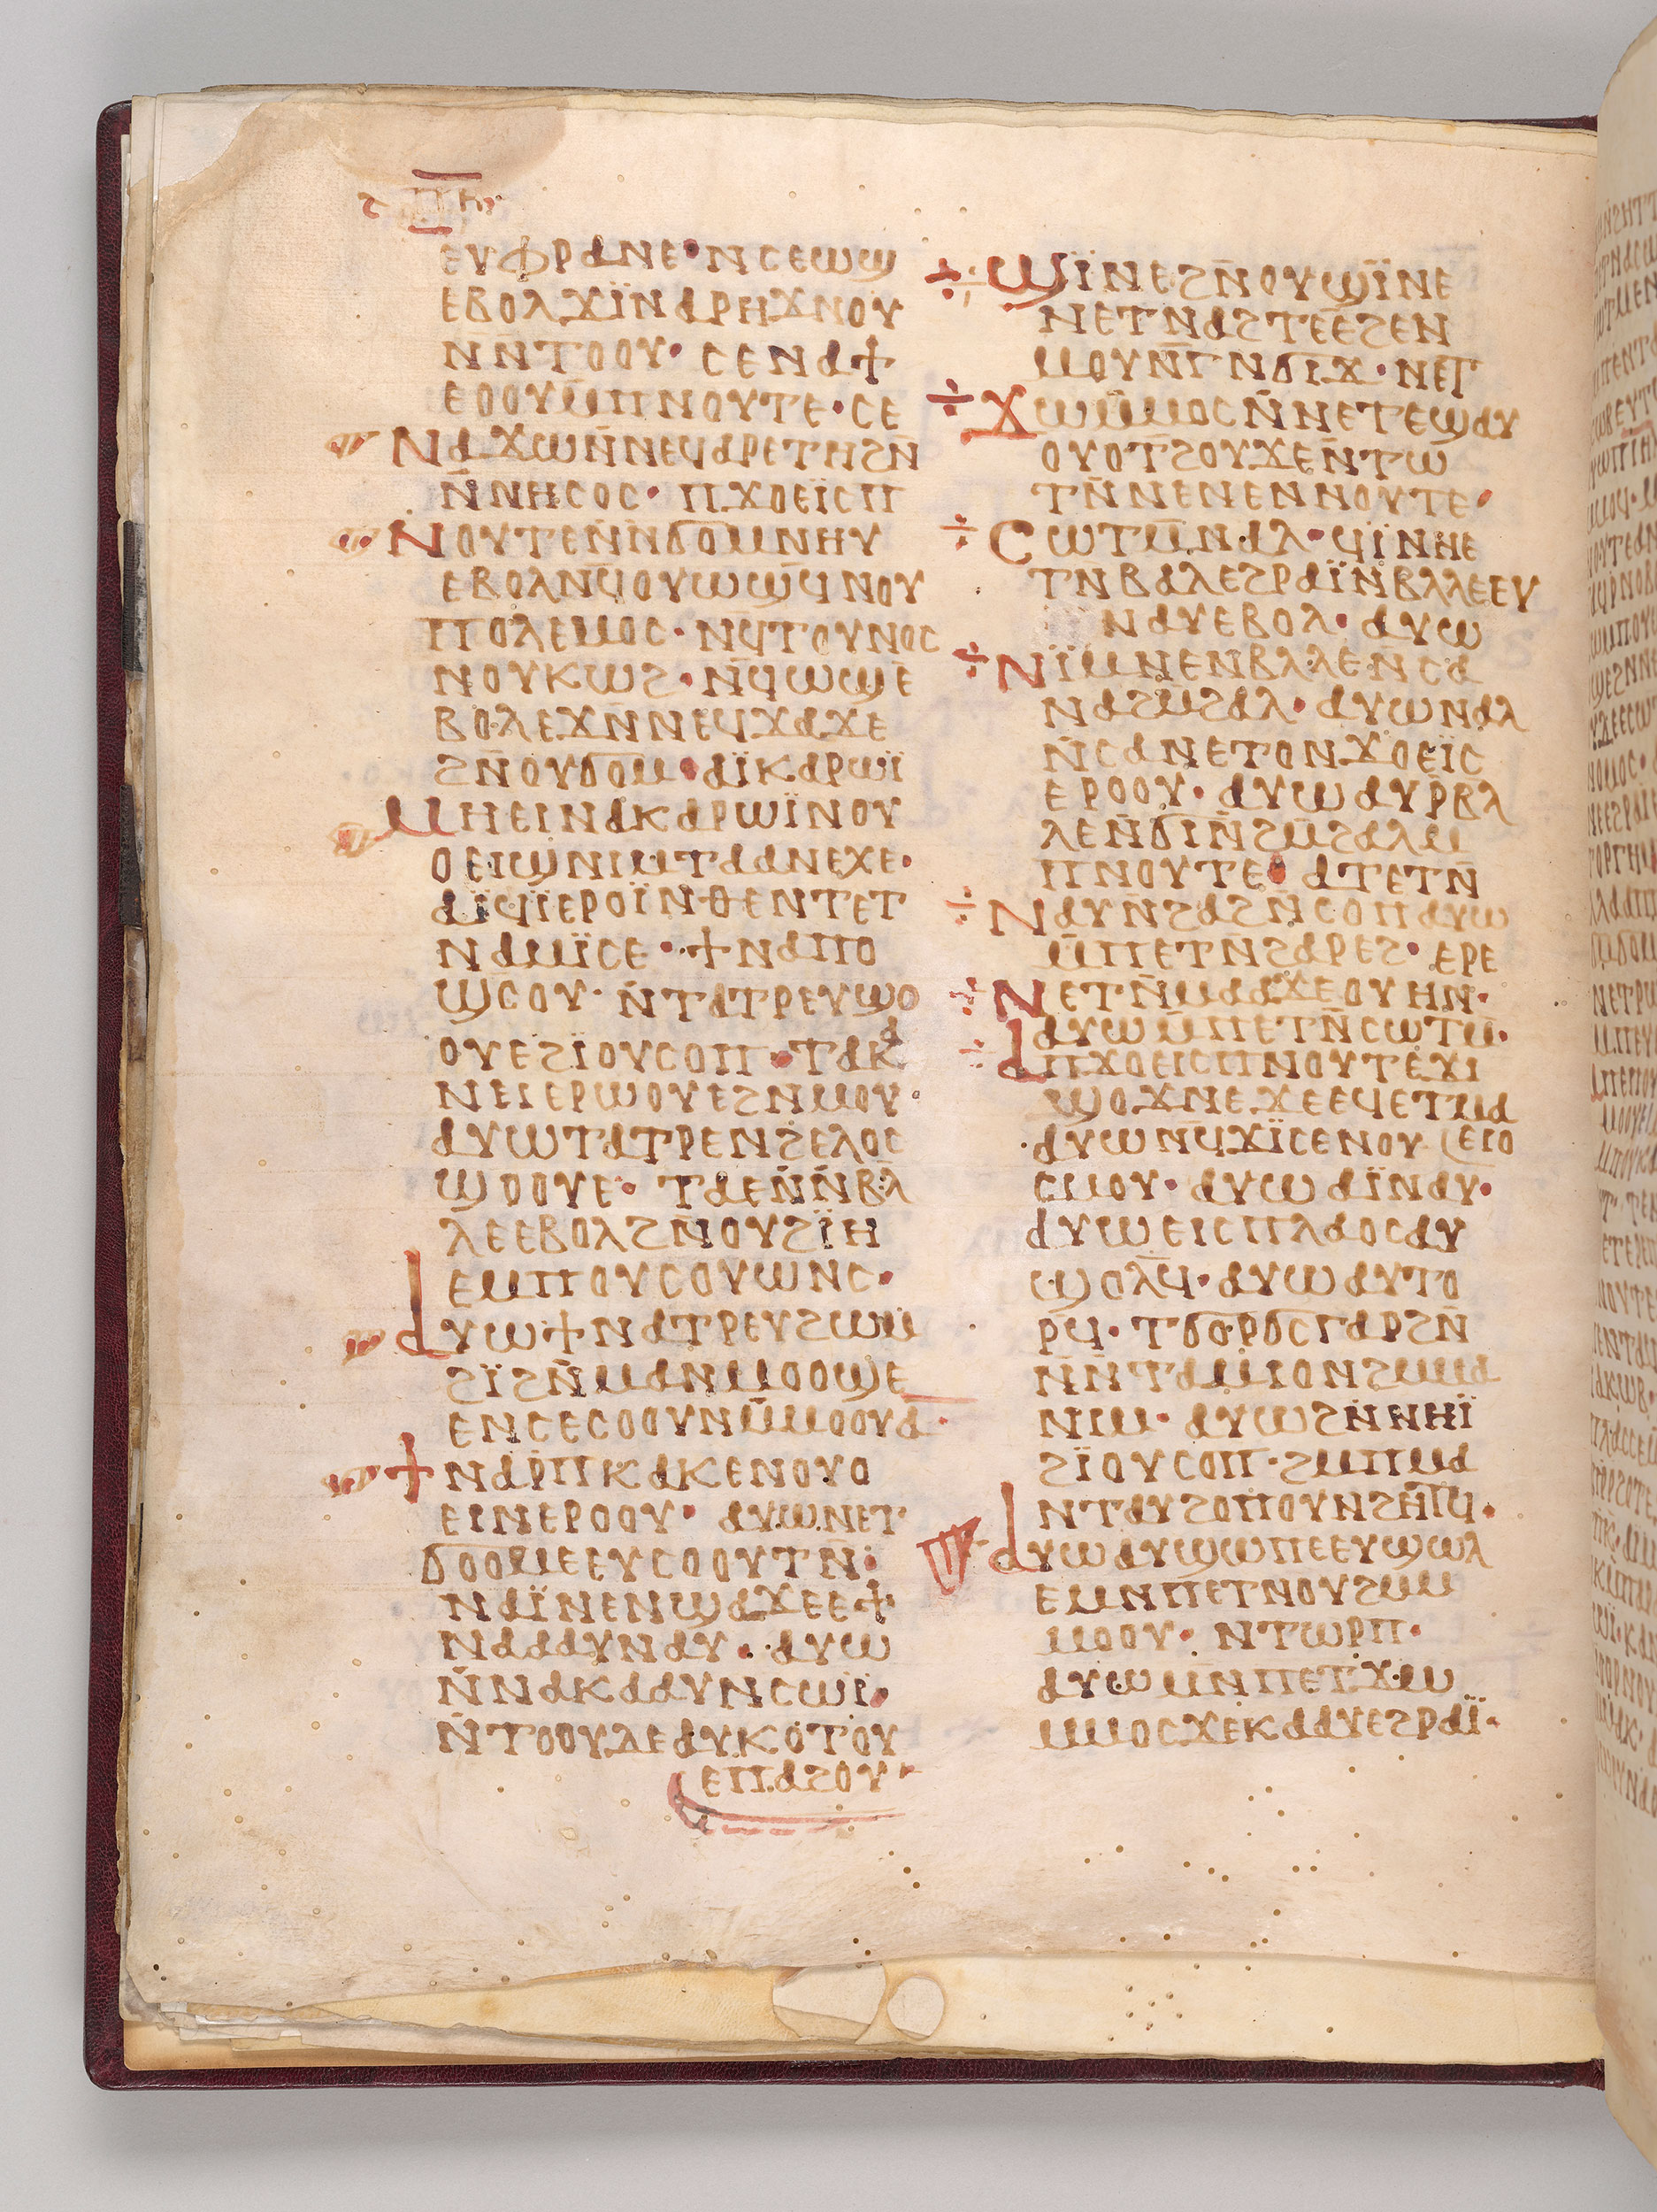 ⲉⲩⲫⲣⲁⲛⲉ· ⲛⲥⲉⲱϣ
ⲉⲃⲟⲗϫⲓ̈ⲛⲁⲣⲏϫⲛⲟⲩ
ⲛⲛⲧⲟⲟⲩ· ⲥⲉⲛⲁϯ
ⲉⲟⲟⲩⲙ̄ⲡⲛⲟⲩⲧⲉ· ⲥⲉ
ⲛⲁϫⲱⲛ̄ⲛⲉϥⲁⲣⲉⲧⲏϩⲛ̄
ⲛ̄ⲛⲏⲥⲟⲥ· ⲡϫⲟⲉⲓ̈ⲥⲡ
ⲛⲟⲩⲧⲉⲛ̄ⲛϭⲟⲙⲛⲏⲩ
ⲉⲃⲟⲗⲛϥ̄ⲟⲩⲱϣϥ̄ⲛⲟⲩ
ⲡⲟⲗⲉⲙⲟⲥ· ⲛϥ̄ⲧⲟⲩⲛⲟⲥ
ⲛⲟⲩⲕⲱϩ· ⲛ̄ϥⲱϣⲉ
ⲃⲟⲗⲉϫⲛ̄ⲛⲉϥϫⲁϫⲉ
ϩⲛ̄ⲟⲩϭⲟⲙ· ⲁⲓ̈ⲕⲁⲣⲱⲓ̈
ⲙⲏⲉⲓⲛⲁⲕⲁⲣⲱⲓ̈ⲛⲟⲩ
ⲟⲉⲓϣⲛⲓⲙⲧⲁⲁⲛⲉⲭⲉ·
ⲁⲓ̈ϥⲓ̈ⲉⲣⲟⲓ̈ⲛⲑⲉⲛⲧⲉⲧ
ⲛⲁⲙⲓ̈ⲥⲉ· ϯⲛⲁⲡⲟ
ϣⲥⲟⲩ· ⲛ̄ⲧⲁⲧⲣⲉⲩϣⲟ
ⲟⲩⲉϩⲓ̈ⲟⲩⲥⲟⲡ· ⲧⲁⲕⲁ
ⲛⲉⲓⲉⲣⲱⲟⲩⲉϩⲛⲙⲟⲩ·
ⲁⲩⲱⲧⲁⲧⲣⲉⲛϩⲉⲗⲟⲥ
ϣⲟⲟⲩⲉ· ⲧⲁⲉⲛ̄ⲛ̄ⲃⲗ̄
ⲗⲉⲉⲃⲟⲗϩⲛ̄ⲟⲩϩⲓ̈ⲏ
ⲉⲙⲡⲟⲩⲥⲟⲩⲱⲛⲥ·
ⲁⲩⲱϯⲛⲁⲧⲣⲉⲩϩⲱⲙ
ϩⲓ̈ϩⲛ̄ⲙⲁⲛⲙⲟⲟϣⲉ
ⲉⲛⲥⲉⲥⲟⲟⲩⲛⲙ̄ⲙⲟⲟⲩⲁ·
ϯⲛⲁⲣⲡⲕⲁⲕⲉⲛⲟⲩⲟ
ⲉⲓⲛⲉⲣⲟⲟⲩ· ⲁⲩⲱⲛⲉⲧ
ϭⲟⲟⲙⲉⲉⲩⲥⲟⲟⲩⲧⲛ̄·
ⲛⲁⲓ̈ⲛⲉⲛϣⲁϫⲉⲉϯ
ⲛⲁⲁⲁⲩⲛⲁⲩ· ⲁⲩⲱ
ⲛ̄ⲛⲁⲕⲁⲁⲩⲛⲥⲱⲓ̈·
ⲛ̄ⲧⲟⲟⲩⲇⲉⲁⲩⲕⲟⲧⲟⲩ
ⲉⲡⲁϩⲟⲩ·
ϣⲓ̈ⲛⲉϩⲛ̄ⲟⲩϣⲓ̈ⲛⲉ
ⲛⲉⲧⲛⲁϩⲧⲉⲉϩⲉⲛ
ⲙⲟⲩⲛ̄ⲅⲛϭⲓϫ· ⲛⲉⲧ
ϫⲱⲙ̄ⲙⲟⲥⲛ̄ⲛⲉⲧⲉϣⲁⲩ
ⲟⲩⲟⲧϩⲟⲩϫⲉⲛ̄ⲧⲱ
ⲧⲛ̄ⲛⲉⲛⲉⲛⲛⲟⲩⲧⲉ·
ⲥⲱⲧⲙ̄ⲛⲁⲗ· ϥⲓ̈ⲛⲛⲉ
ⲧⲛⲃⲁⲗⲉϩⲣⲁⲓ̈ⲛⲃⲗⲗⲉⲉⲩ
ⲛⲁⲩⲉⲃⲟⲗ· ⲁⲩⲱ
ⲛⲓ̈ⲙⲛⲉⲛⲃⲗⲗⲉⲛ̄ⲥⲁ
ⲛⲁϩⲙϩⲁⲗ· ⲁⲩⲱⲛⲁⲗ
ⲛ̄ⲥⲁⲛⲉⲧⲟⲛϫⲟⲉⲓ̈ⲥ
ⲉⲣⲟⲟⲩ· ⲁⲩⲱⲁⲩⲣ̄ⲃⲗ
ⲗⲉⲛ̄ϭⲓⲛ̄ϩⲙ̄ϩⲁⲗⲙ
ⲡⲛⲟⲩⲧⲉ· ⲁⲧⲉⲧⲛ̄
ⲛⲁⲩⲛ̄ϩⲁϩⲛ̄ⲥⲟⲡⲁⲩⲱ
ⲙ̄ⲡⲉⲧⲛ̄ϩⲁⲣⲉϩ· ⲉⲣⲉ
ⲛⲉⲧⲛ̄ⲙⲁⲁϫⲉⲟⲩⲏⲛ·
ⲁⲩⲱⲙ̄ⲡⲉⲧⲛ̄ⲥⲱⲧⲙ̄·
ⲁⲡϫⲟⲉⲓⲥⲡⲛⲟⲩⲧⲉϫⲓ
ϣⲟϫⲛⲉϫⲉⲉϥⲉⲧⲙⲁ
ⲉⲓⲟ
ⲁⲩⲱⲛϥϫⲓ̈ⲥⲉⲛⲟⲩ
ⲥⲙⲟⲩ· ⲁⲩⲱⲁⲓ̈ⲛⲁⲩ·
ⲁⲩⲱⲉⲓⲥⲡⲗⲁⲟⲥⲁⲩ
ϣⲟⲗϥ̄· ⲁⲩⲱⲁⲩⲧⲟ
ⲣϥ· ⲧϭⲟⲣϭⲥⲅⲁⲣϩⲛ̄
ⲛ̄ⲛ̄ⲧⲁⲙⲓⲟⲛϩⲙⲙⲁ
ⲛⲓⲙ· ⲁⲩⲱϩⲛ̄ⲛⲏⲓ̈
ϩⲓ̈ⲟⲩⲥⲟⲡ· ϩⲙⲡⲙⲁ
ⲛⲧⲁⲩϩⲟⲡⲟⲩⲛϩⲏⲧϥ̄·
ⲁⲩⲱⲁⲩϣⲱⲡⲉⲉⲩϣⲱⲗ
ⲉⲙⲛⲡⲉⲧⲛⲟⲩϩⲙ
ⲙⲟⲟⲩ· ⲛⲧⲱⲣⲡ·
ⲁⲩⲱⲙⲛ̄ⲡⲉⲧϫⲱ
ⲙⲙⲟⲥϫⲉⲕⲁⲁⲩⲉϩⲣⲁⲓ̈·